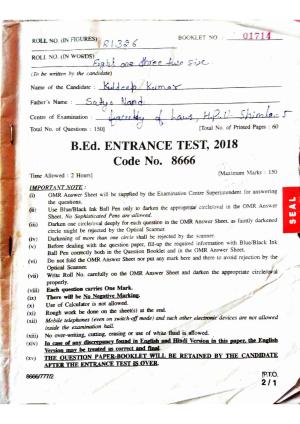 ROLL NO. (IN FIGURES) 81326 BOOKLET NO. 01714
ROLL NO. (IN WORDS)
Eight one three two six
(To be written by the candidate)
Name of the Candidate : Kuldeep Kumar
Father's Name : Satya Nand
Centre of Examination : of Laws, H.P.U Shimla-5
Total No. of Questions : 150] [Total No. of Printed Pages : 60
B.Ed. ENTRANCE TEST, 2018
Code No. 8666
Time Allowed : 2 Hours] (Maximum Marks : 150
IMPORTANT NOTE :
(i) OMR Answer Sheet will be supplied by the Examination Centre Superintendent for answering
the questions.
(ii) Use Blue/Black Ink Ball Pen only to darken the appropriate circle/oval in the OMR Answer
Sheet. No Sophisticated Pens are allowed.
(iii) Darken one circle/oval deeply for each question in the OMR Answer Sheet, as faintly darkened
circle might be rejected by the Optical Scanner.
(iv) Darkening of more than one circle shall be rejected by the scanner.
(v) Before dealing with the question paper, fill-up the required information with Blue/Black Ink
Ball Pen correctly both in the Question Booklet and in the OMR Answer Sheet.
(vi) Do not fold the OMR Answer Sheet nor put any mark here and there to avoid rejection by the
Optical Scanner.
(vii) Write Roll No. carefully on the OMR Answer Sheet and darken the appropriate circle/oval
properly.
(viii) Each question carries One Mark.
(ix) There will be No Negative Marking.
(x) Use of Calculator is not allowed.
(xi) Rough work be done on the sheet(s) at the end.
(xii) Mobile telephones (even on switch-off mode) and such other electronic devices are not allowed
inside the examination hall.
(xiii) No over-writing, cutting, erasing or use of white fluid is allowed.
(xiv) In case of any discrepancy found in English and Hindi Version in this paper, the English
Version may be treated as correct and final.
(xv) THE QUESTION PAPER-BOOKLET WILL BE RETAINED BY THE CANDIDATE
AFTER THE ENTRANCE TEST IS OVER.
8666/777/2 [P.T.O.
2 / 1
SEAL